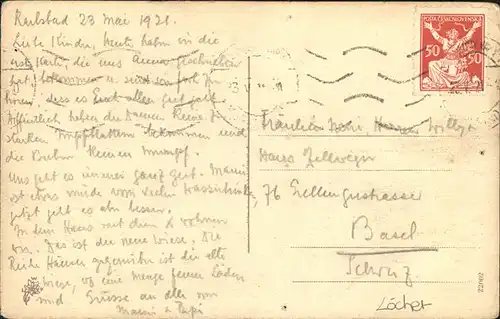 Karlsbad 23 Mai 1921.
Liebe Kinder, Heute haben wir die
erste Karte, die uns Anna geschrieben
hat bekommen und sind froh zu
hören, dass es Euch allen gut geht
Hoffentlich haben die Damen keine zu
starken Impfblattern bekommen und
die Buben keinen
Uns geht es immer ganz gut. Mami
ist etwas müde vom vielen Wassertrinken,
jetzt geht es aber besser.
In dem Haus mit dem X wohnen
wir. Das ist die neue Wiese. Die
Reihe Häuser gegenüber ist die alte
Wiese, wo eine Menge feiner Läden
sind Grüsse an alle von
Mami & Papi
POŠTA ČESKOSLOVENSKÁ
50 50
Fräulein Willy
Hans Zellweger
76 Sellingerstrasse
Basel
Schweiz
Löcher
22/902